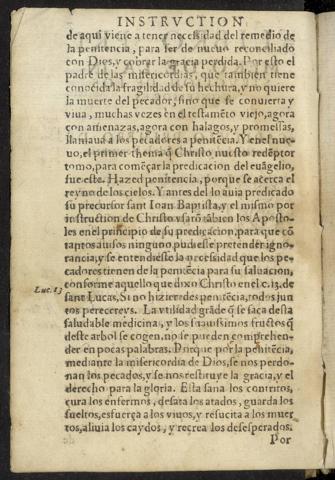 INSTRVCTION
de aqui viene a tener necessidad del remedio de
la penitencia, para ser de nueuo reconciliado
con Dios, y cobrar la gracia perdida. Por esto el
padre de las misericordias, que tambien tiene
conocida la fragilidad de su hechura, y no quiere
la muerte del pecador, sino que se conuierta y
viua, muchas vezes en el testamẽto viejo, agora
con amenazas, agora con halagos, y promessas,
llamaua a los pecadores a penitẽcia. Y en el nue-
uo, el primer thema q̃ Christo nuestro redẽptor
tomo, para començar la predicacion del euãgelio,
fue este. Hazed penitencia, porque se acerca el
reyno de los cielos. Y antes del lo auia predicado
su precursor sant Ioan Baptista, y el mismo por
instruction de Christo vsarõ tãbien los Aposto-
les en el principio de su predicacion, para que cõ
tantos auisos ninguno pudiesse pretender igno-
rancia, y se entendiesse la necessidad que los pe-
cadores tienen de la penitẽcia para su saluacion,
conforme aquello que dixo Christo en el c. 13. de
Luc. 13
sant Lucas, Si no hizieredes penitẽcia, todos jun
tos perecereys. La vtilidad grãde q̃ se saca desta
saludable medicina, y los suauissimos frustos q̃
deste arbol se cogen, no se pueden comprehen-
der en pocas palabras. Porque por la penitẽcia,
mediante la misericordia de Dios, se nos perdo-
nan los pecados, y se nos restituye la gracia, y el
derecho para la gloria. Esta sana los contritos,
cura los enfermos, desata los atados, guarda los
sueltos, esfuerça a los viuos, y resucita a los muer
tos, aliuia los caydos, y recrea los desesperados.
Por